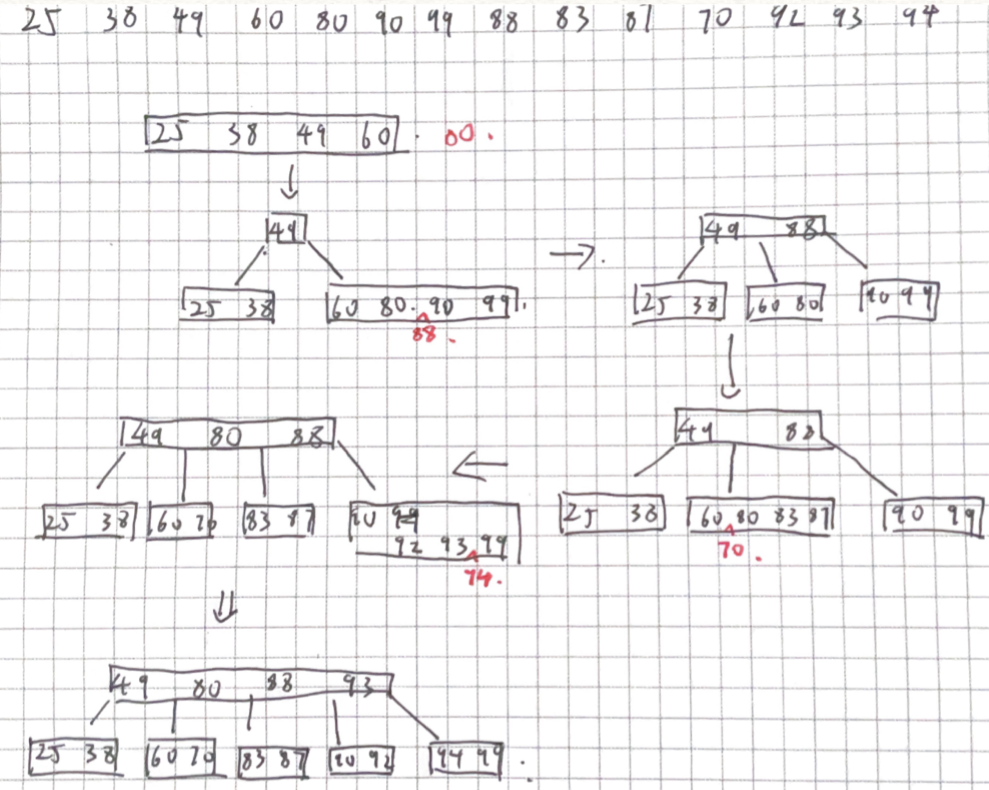 25 38 49 60 80 90 99 88 83 87 70 92 93 94
25 38 49 60 80.
49
25 38
60 80 90 99
88.
49 88
25 38
60 80
90 99
49 88
25 38
60 80 83 87
70.
90 99
49 80 88
25 38
60 70
83 87
90 99
92 93 99
94.
49 80 88 93
25 38
60 70
83 87
90 92
94 99